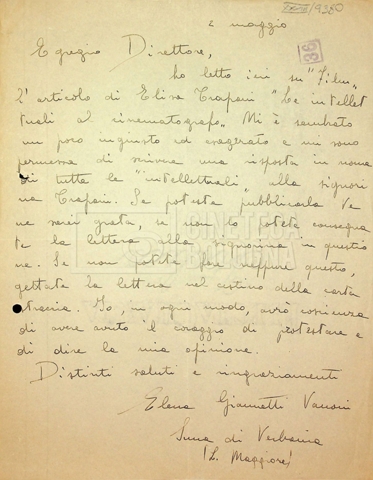 XXVII/9380
36
2 maggio
Egregio Direttore,
ho letto ieri su "Film„
l'articolo di Elisa Trapani "Le intellet
tuali al cinematografo„ Mi è sembrato
un poco ingiusto ed esagerato e mi sono
permessa di scrivere una risposta in nome
di tutte le "intellettuali„ alla signori
na Trapani. Se potete pubblicarla Ve
ne sarei grata, se non lo potete consegna
te la lettera alla "signorina" in questio
ne. Se non potete fare neppure questo,
gettate la lettera nel cestino della carta
straccia. Io, in ogni modo, avrò coscienza
di avere avuto il coraggio di protestare e
di dire la mia opinione.
Distinti saluti e ringraziamenti
Elena Giannotti Vanoni
Suna di Verbania
(L. Maggiore)